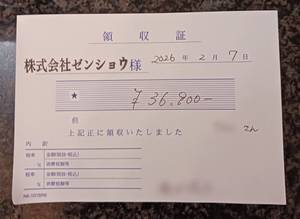 領収証
株式会社ゼンショウ様 2026年2月7日
★ ¥36,800-
但
上記正に領収いたしました
さん
内訳
税率 金額(税抜・税込)
% 消費税額等
税率 金額(税抜・税込)
% 消費税額等